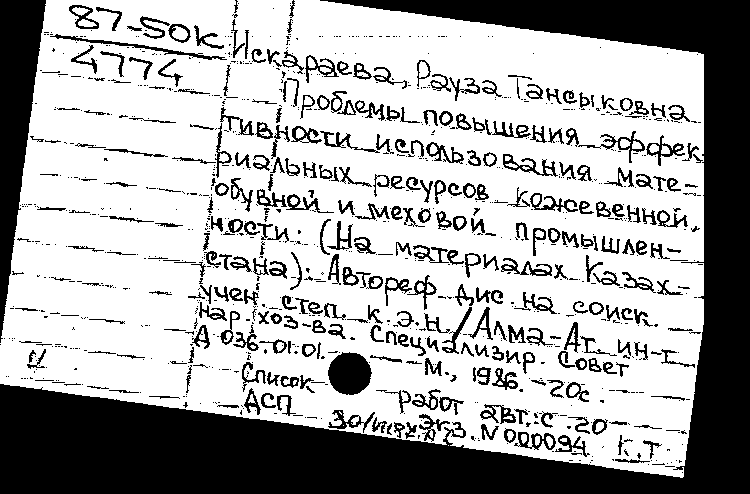 87-50к
4774
Искараева, Рауза Тансыковна
Проблемы повышения эффек
тивности использования мате-
риальных ресурсов кожевенной,
обувной и меховой промышлен-
ности: (На материалах Казах-
стана): Автореф. дис. на соиск.
учен. степ. к.э.н./Алма-Ат. ин-т
нар. хоз-ва. Специализир. совет
Д 036.01.01. — М., 1986. - 20с.
Список работ авт.: с. 20
ДСП Экз. N 000094 К.Т